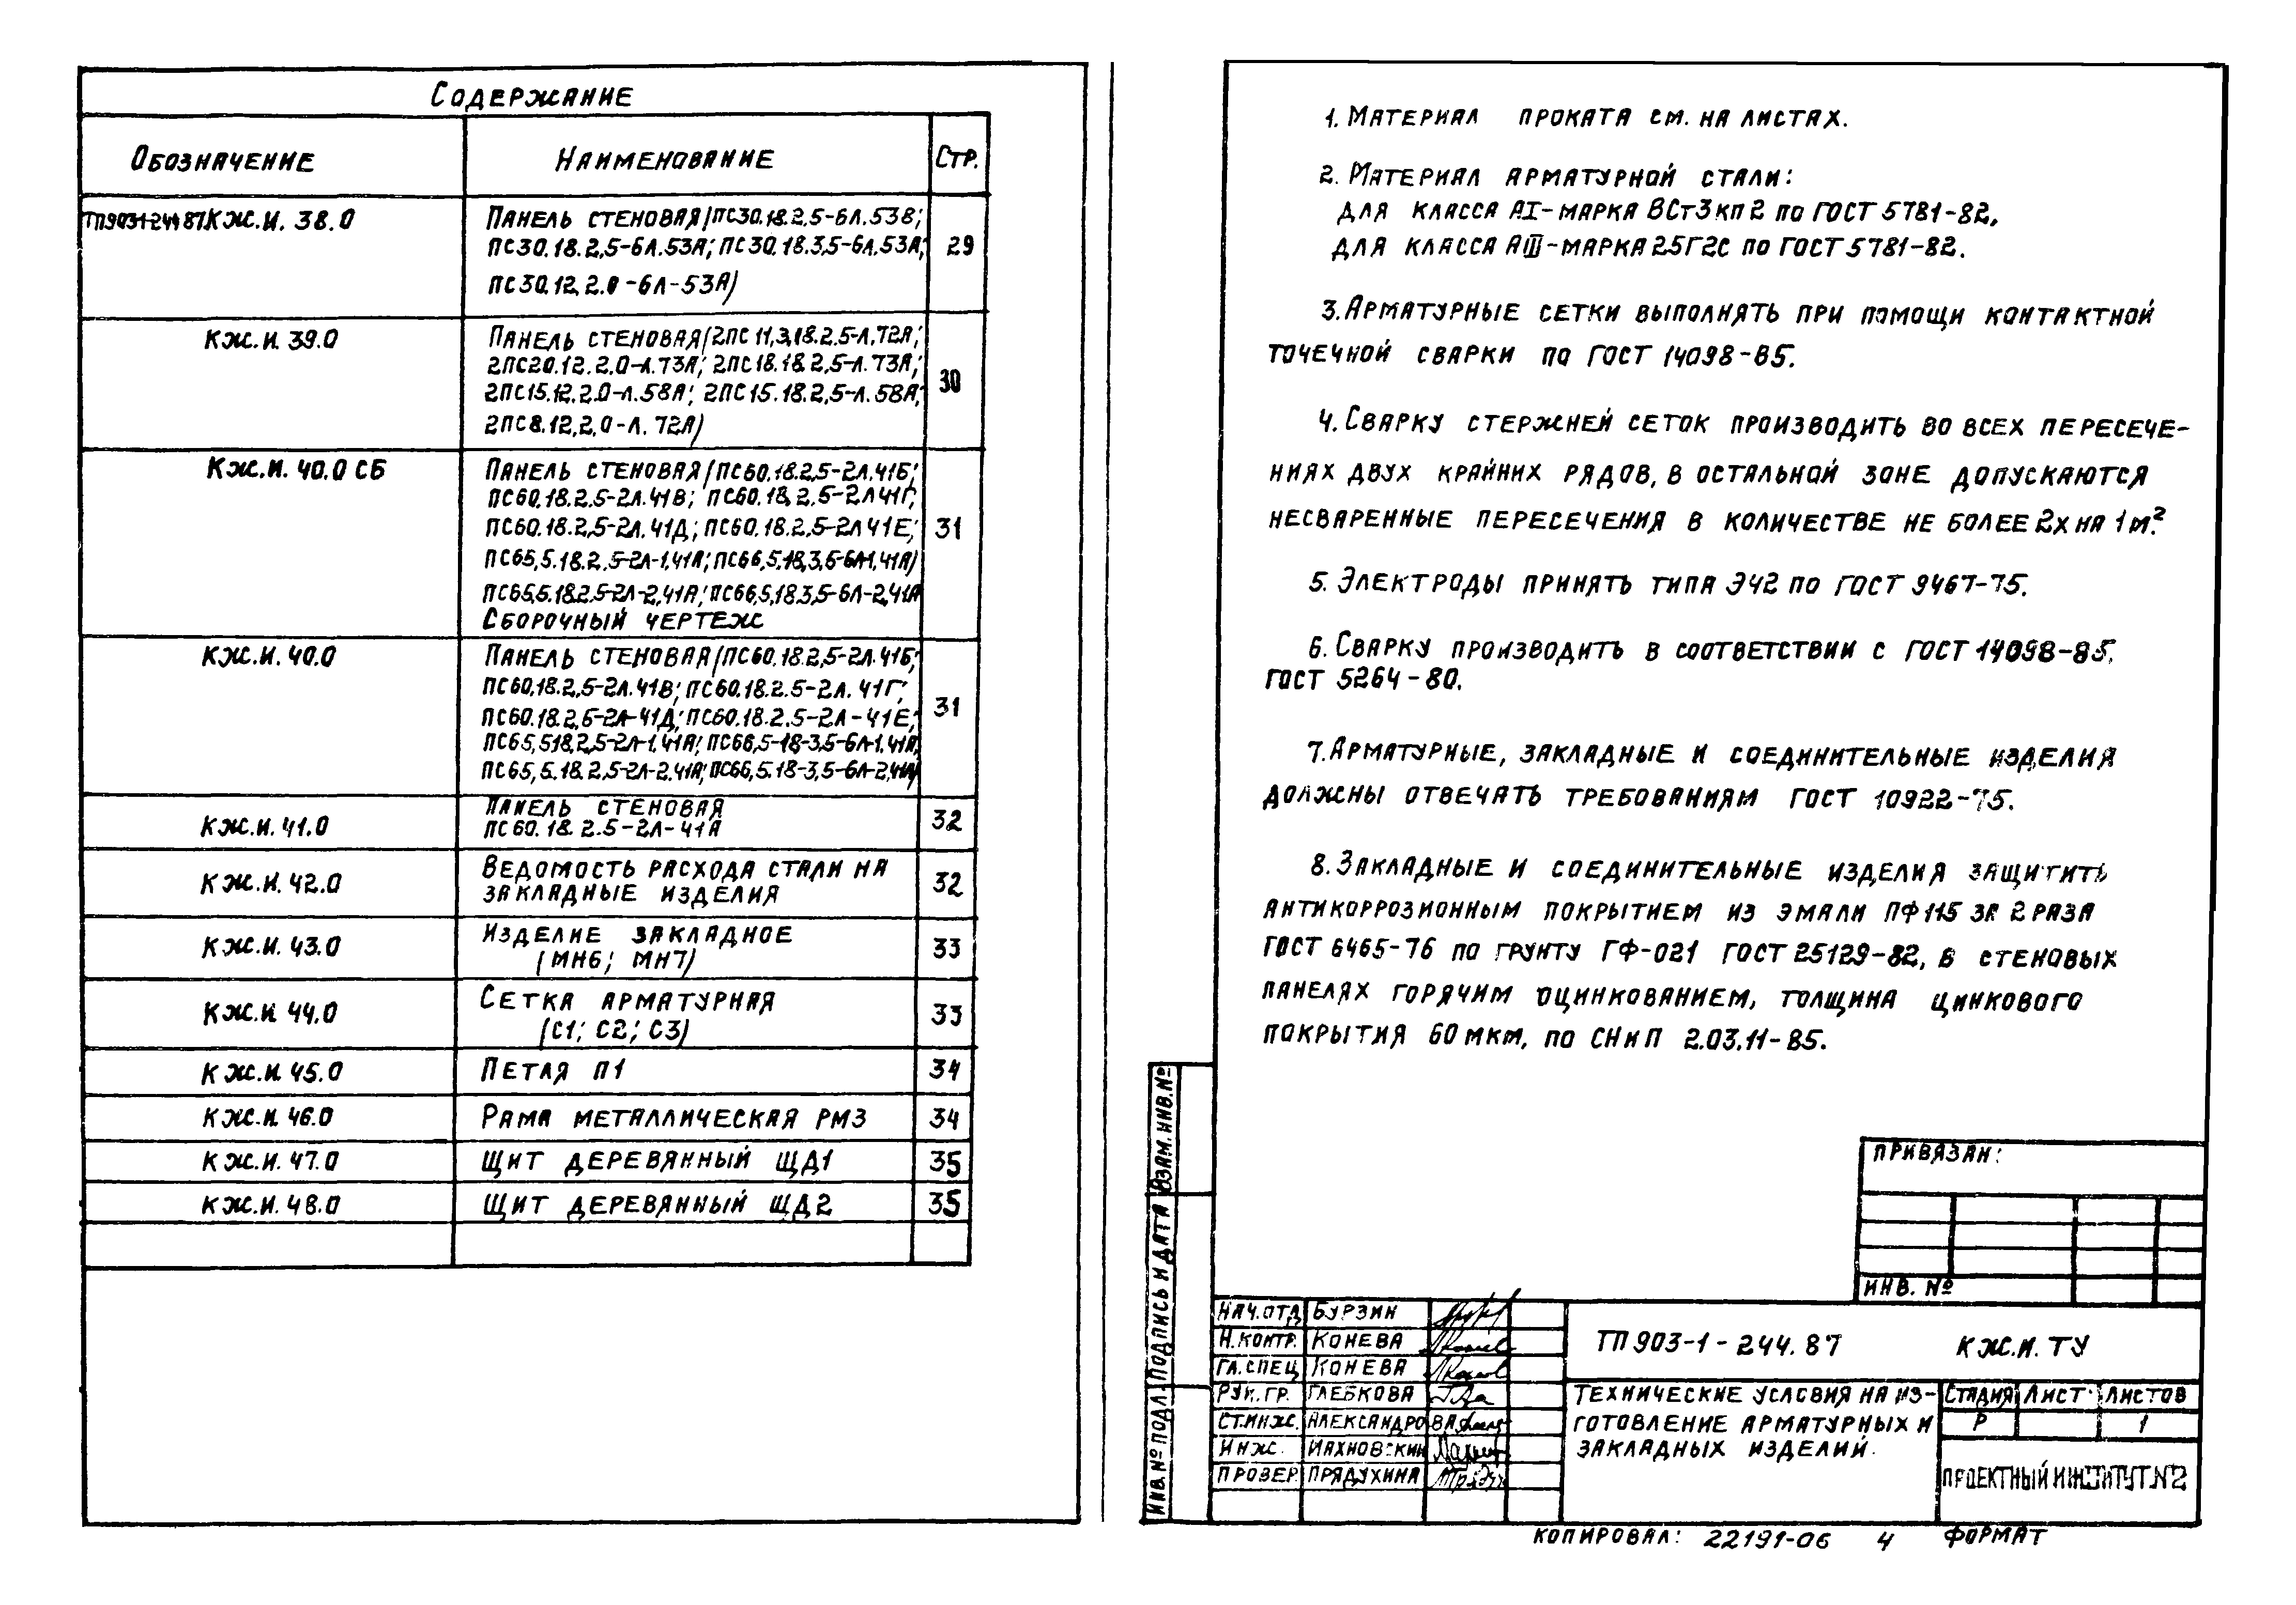 Содержание
Обозначение Наименование Стр.
ТП903-1-244.87 КЖ.И. 38.0 Панель стеновая (ПС30.18.2,5-6Л.53В;
ПС30.18.2,5-6Л.53А; ПС30.18.3,5-6Л.53А; 29
ПС30.12.2.0-6Л-53А)
КЖ.И. 39.0 Панель стеновая (2ПС11,3.18.2.5-Л.72А;
2ПС20.12.2.0-Л.73А; 2ПС18.18.2,5-Л.73А;
2ПС15.12.2.0-Л.58А; 2ПС15.18.2,5-Л.58А; 30
2ПС8.12,2,0-Л.72А)
КЖ.И. 40.0 СБ Панель стеновая (ПС60.18.2,5-2Л.41Б;
ПС60.18.2,5-2Л.41В; ПС60.18,2,5-2Л41Г;
ПС60.18.2,5-2Л.41Д; ПС60.18.2,5-2Л41Е; 31
ПС65,5.18.2.5-2Л-1,41А; ПС66,5.18,3,5-6Л-1.41А)
ПС65,5.18.2,5-2Л-2,41А; ПС66,5,18.3,5-6Л-2,41А
Сборочный чертеж
КЖ.И. 40.0 Панель стеновая (ПС60.18.2,5-2Л.41Б;
ПС60.18.2,5-2Л.41В; ПС60.18.2.5-2Л.41Г;
ПС60.18.2,5-2Л-41Д; ПС60.18.2.5-2Л-41Е; 31
ПС65,5.18.2,5-2Л-1.41А; ПС66,5-18-3,5-6Л-1.41А;
ПС65,5.18.2,5-2Л-2.41А; ПС66,5.18-3,5-6Л-2,41А)
КЖ.И. 41.0 Панель стеновая
ПС60.18.2.5-2Л-41А 32
КЖ.И. 42.0 Ведомость расхода стали на
закладные изделия 32
КЖ.И. 43.0 Изделие закладное
(МН6; МН7) 33
КЖ.И. 44.0 Сетка арматурная
(С1; С2; С3) 33
КЖ.И. 45.0 Петля П1 34
КЖ.И. 46.0 Рама металлическая РМ3 34
КЖ.И. 47.0 Щит деревянный ЩД1 35
КЖ.И. 48.0 Щит деревянный ЩД2 35
1. Материал проката см. на листах.
2. Материал арматурной стали:
для класса АI-марка ВСт3кп2 по ГОСТ 5781-82,
для класса АIII-марка 25Г2С по ГОСТ 5781-82.
3. Арматурные сетки выполнять при помощи контактной
точечной сварки по ГОСТ 14098-85.
4. Сварку стержней сеток производить во всех пересече-
ниях двух крайних рядов, в остальной зоне допускаются
несваренные пересечения в количестве не более 2х на 1м².
5. Электроды принять типа Э42 по ГОСТ 9467-75.
6. Сварку производить в соответствии с ГОСТ 14098-85,
ГОСТ 5264-80.
7. Арматурные, закладные и соединительные изделия
должны отвечать требованиям ГОСТ 10922-75.
8. Закладные и соединительные изделия защитить
антикоррозионным покрытием из эмали ПФ115 за 2 раза
ГОСТ 6465-76 по грунту ГФ-021 ГОСТ 25129-82, в стеновых
панелях горячим оцинкованием, толщина цинкового
покрытия 60 мкм, по СНиП 2.03.11-85.
Взам. инв. №
Подпись и дата
Инв. № подл.
Привязан:
Инв. №
Нач. отд. Бурзин
Н. контр. Конева
Гл. спец. Конева
Рук. гр. Глебкова
Ст. инж. Александрова
Инж.
Провер. Прядухина
ТП 903-1-244.87 КЖ.И.ТУ
Технические условия на из-
готовление арматурных и
закладных изделий.
Стадия Лист Листов
Р 1
Проектный институт №2
Копировал: 22191-06 4 Формат